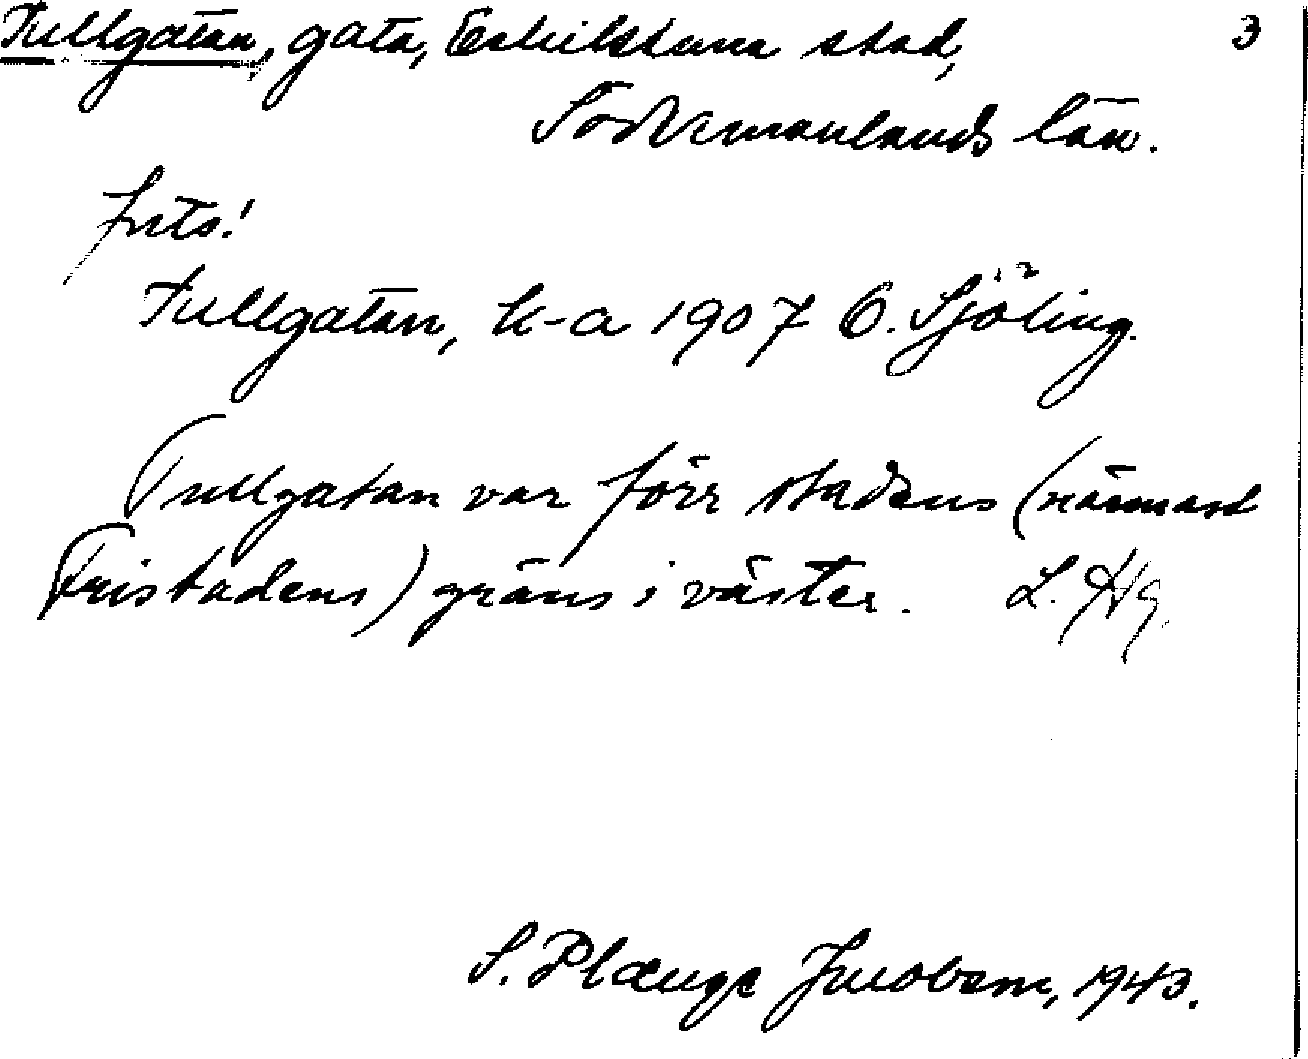 Tullgatan, gata, Eskilstuna stad, 3
Södermanlands län.
foto!
Tullgatan, k-a 1907 C. Sjöling.
Tullgatan var förr stadens (närmast
Fristadens) gräns i väster. L. Hg.
S. Plænge Jacobson, 1943.